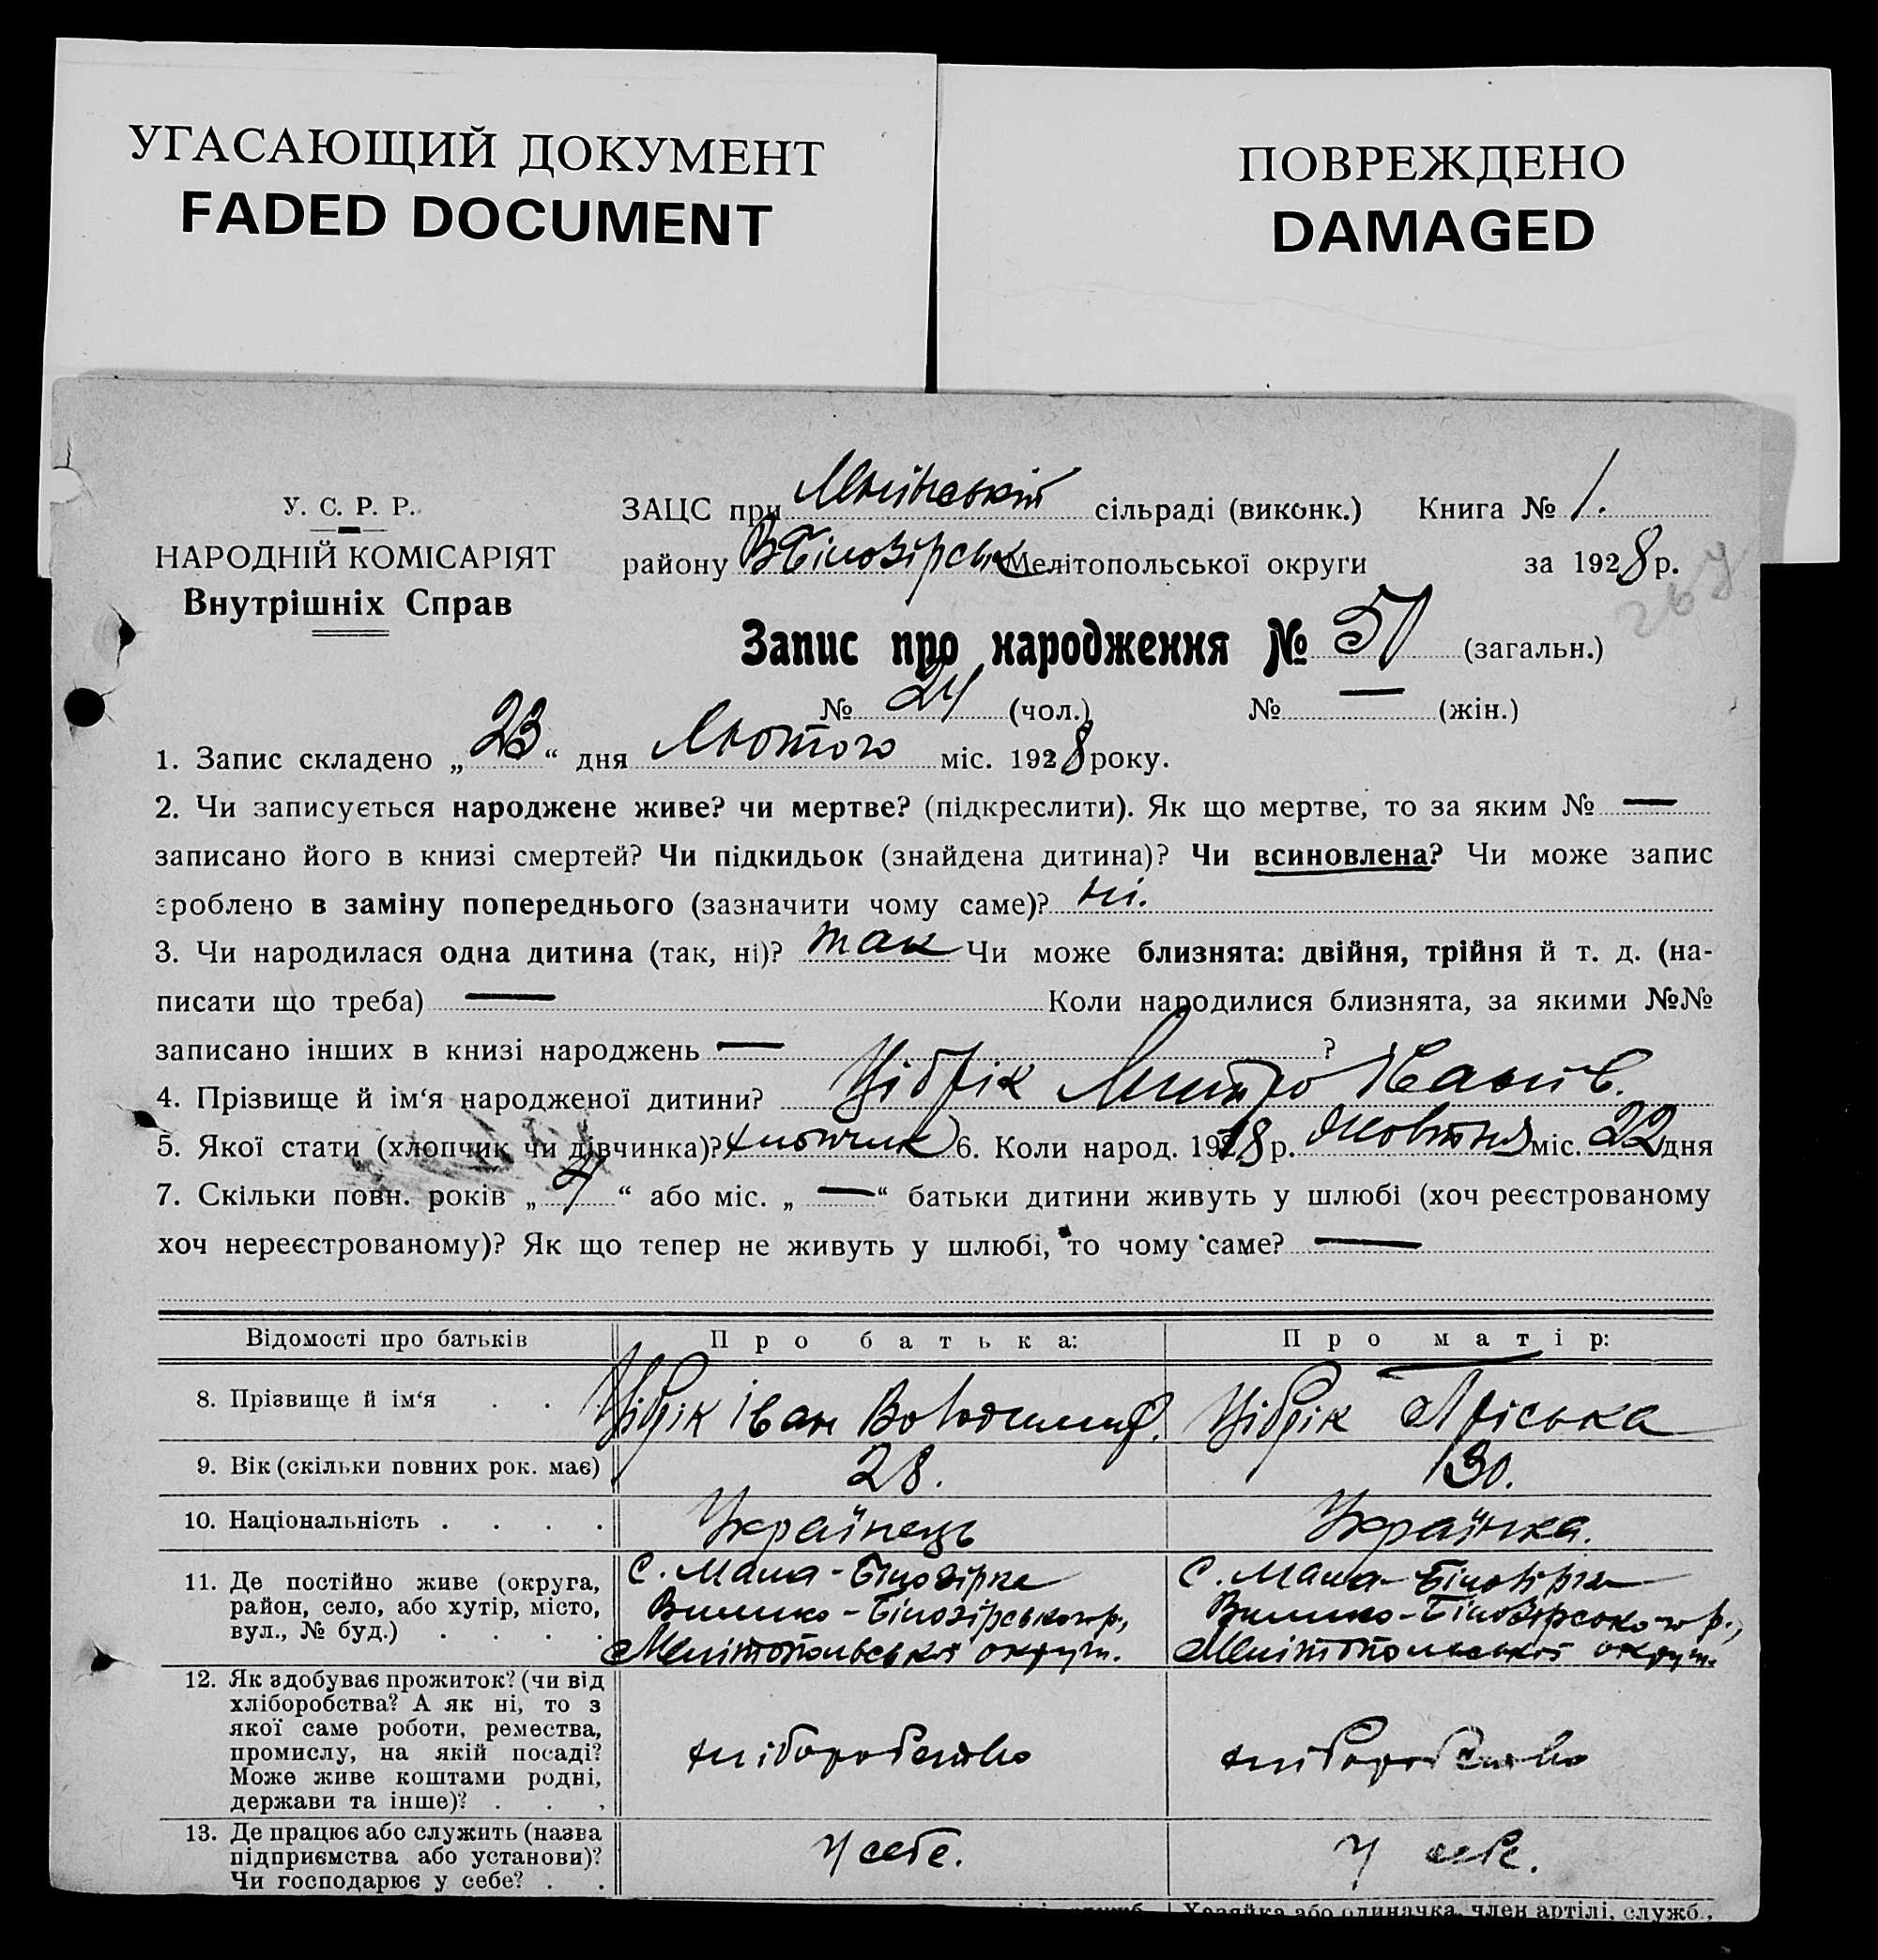 УГАСАЮЩИЙ ДОКУМЕНТ
FADED DOCUMENT
ПОВРЕЖДЕНО
DAMAGED
У. С. Р. Р.
НАРОДНІЙ КОМІСАРІЯТ
Внутрішніх Справ
ЗАЦС при сільраді (виконк.) Книга № 1.
району ВБілозірськ Мелітопольської округи за 1928 р.
Запис про народження № 51 (загальн.)
№ 24 (чол.) № — (жін.)
1. Запис складено „23“ дня Лютого міс. 1928 року.
2. Чи записується народжене живе? чи мертве? (підкреслити). Як що мертве, то за яким № —
записано його в книзі смертей? Чи підкидьок (знайдена дитина)? Чи всиновлена? Чи може запис
зроблено в заміну попереднього (зазначити чому саме)? ні.
3. Чи народилася одна дитина (так, ні)? так Чи може близнята: двійня, трійня й т. д. (на-
писати що треба) — Коли народилися близнята, за якими №№
записано інших в книзі народжень — ?
4. Прізвище й ім‘я народженої дитини? Цібрік Дмитро Іванів.
5. Якої стати (хлопчик чи дівчинка)? хлопчик 6. Коли народ. 1918 р. Жовтня міс. 22 дня
7. Скільки повн. років „ “ або міс. „ — “ батьки дитини живуть у шлюбі (хоч реєстрованому
хоч нереєстрованому)? Як що тепер не живуть у шлюбі, то чому саме? —
Відомості про батьків Про батька: Про матір:
8. Прізвище й ім‘я . . . Цібрік Іван Володимир. Цібрік Пріська
9. Вік (скільки повних рок. має) 28. 30.
10. Національність . . . . Українець Українка.
11. Де постійно живе (округа,
район, село, або хутір, місто,
вул., № буд.) . . . .
с. Мала-Білозірка
Велико-Білозірського р.,
Мелітопольської округи.
с. Мала-Білозірка
Велико-Білозірського р.,
Мелітопольської округи.
12. Як здобуває прожиток? (чи від
хліборобства? А як ні, то з
якої саме роботи, ремества,
промислу, на якій посаді?
Може живе коштами родні,
держави та інше)? . . .
хліборобство
хліборобство
13. Де працює або служить (назва
підприємства або установи)?
Чи господарює у себе? . .
У себе.
У себе.
Хозяйка або одиначка, член артілі, служб.,